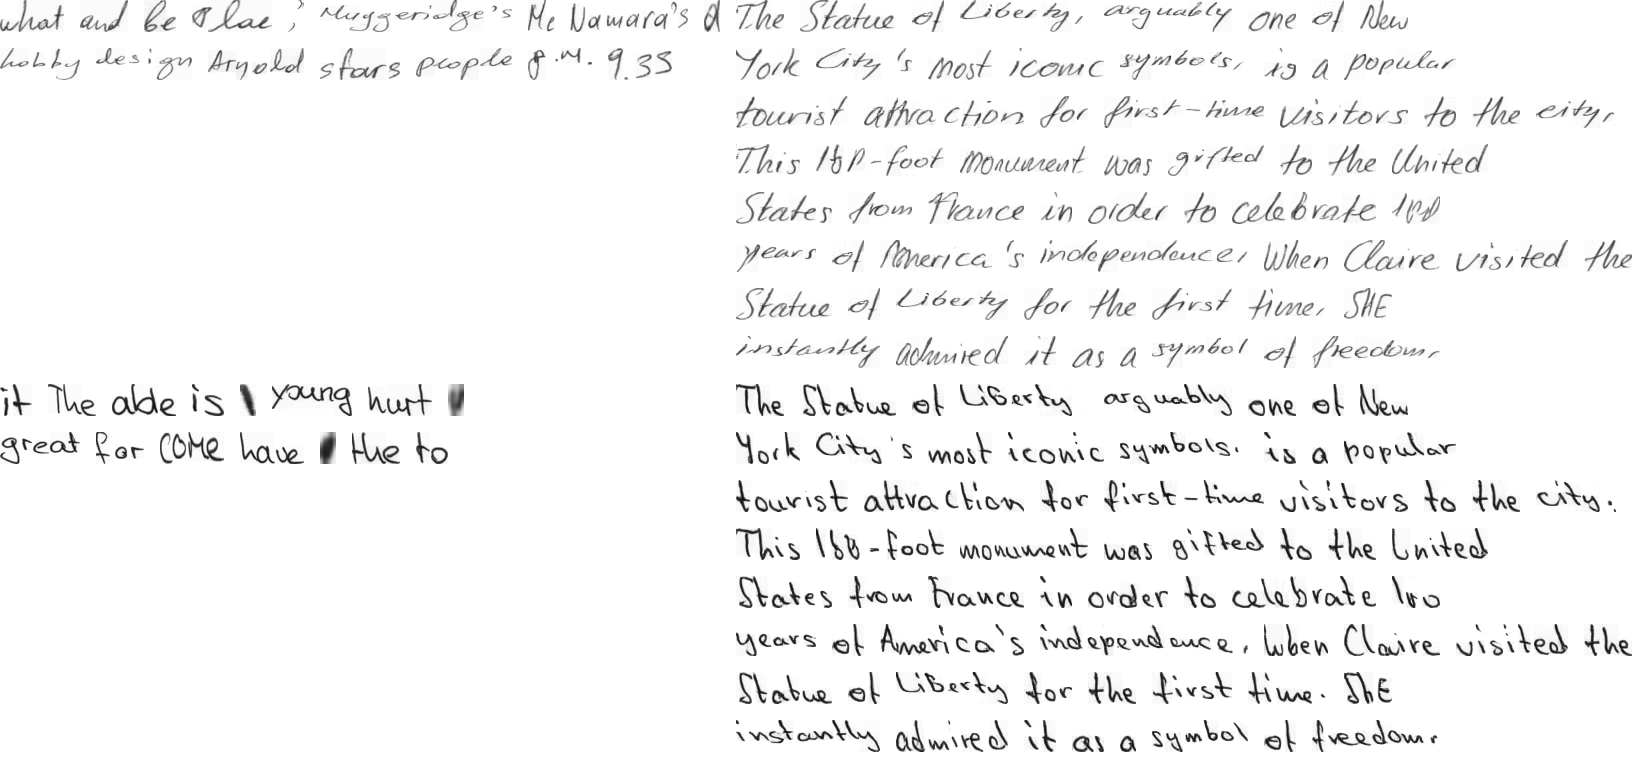 what and be lac ; Muggeridge's Mc Namara's a
hobby design Arnold stars people p.m. 9.35
The Statue of Liberty, arguably one of New
York City's most iconic symbols, is a popular
tourist attraction for first-time visitors to the city,
This -foot monument was gifted to the United
States from France in order to celebrate 100
years of America's independence, When Claire visited the
Statue of Liberty for the first time, SHE
instantly admired it as a symbol of freedom,
it The able is young hurt
great for COME have the to
The Statue of LiBerty arguably one of New
York City's most iconic symbols. is a popular
tourist attraction for first-time visitors to the city.
This 160-foot monument was gifted to the United
States from France in order to celebrate 100
years of America's independence, When Claire visited the
Statue of LiBerty for the first time. ShE
instantly admired it as a symbol of freedom.